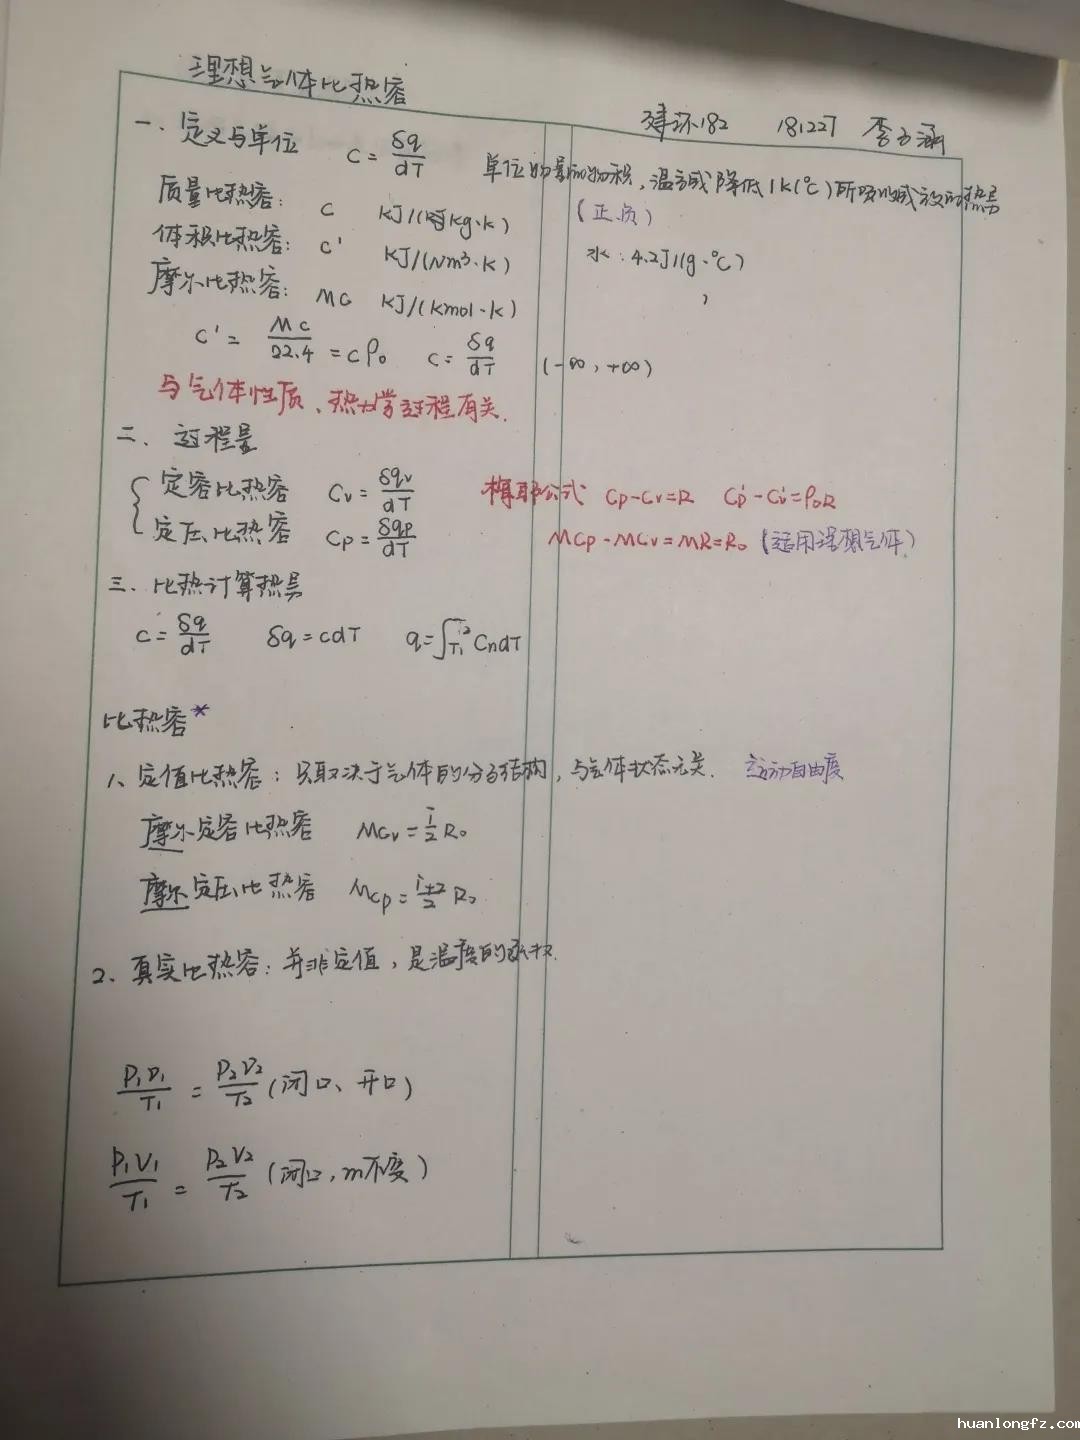 理想气体比热容
建环182 181227 李子涵
一、定义与单位 c=δq/dT 单位物量的物积,温高或降低1k(℃)所吸收或放的热量
(正 负)
质量比热容: c KJ/(kg·k)
体积比热容: c' KJ/(Nm³·k) 水:4.2J/(g·℃)
摩尔比热容: Mc KJ/(kmol·k)
c'=Mc/22.4=cρ₀ c=δq/dT (-∞,+∞)
与气体性质、热力学过程有关.
二、过程量
定容比热容 Cv=δqv/dT 梅耶公式 Cp-Cv=R Cp'-Cv'=ρ₀R
定压比热容 Cp=δqp/dT MCp-MCv=MR=R₀(适用理想气体)
三、比热计算热量
c=δq/dT δq=cdT q=∫T₁T₂CndT
比热容*
1、定值比热容:只取决于气体的分子结构,与气体状态无关. 运动自由度
摩尔定容比热容 Mcv=i/2 R₀
摩尔定压比热容 Mcp=i+2/2 R₀
2、真实比热容:并非定值,是温度的函数.
P₁υ₁/T₁=P₂υ₂/T₂(闭口、开口)
P₁V₁/T₁=P₂V₂/T₂(闭口,m不变)
huanlongfz.com